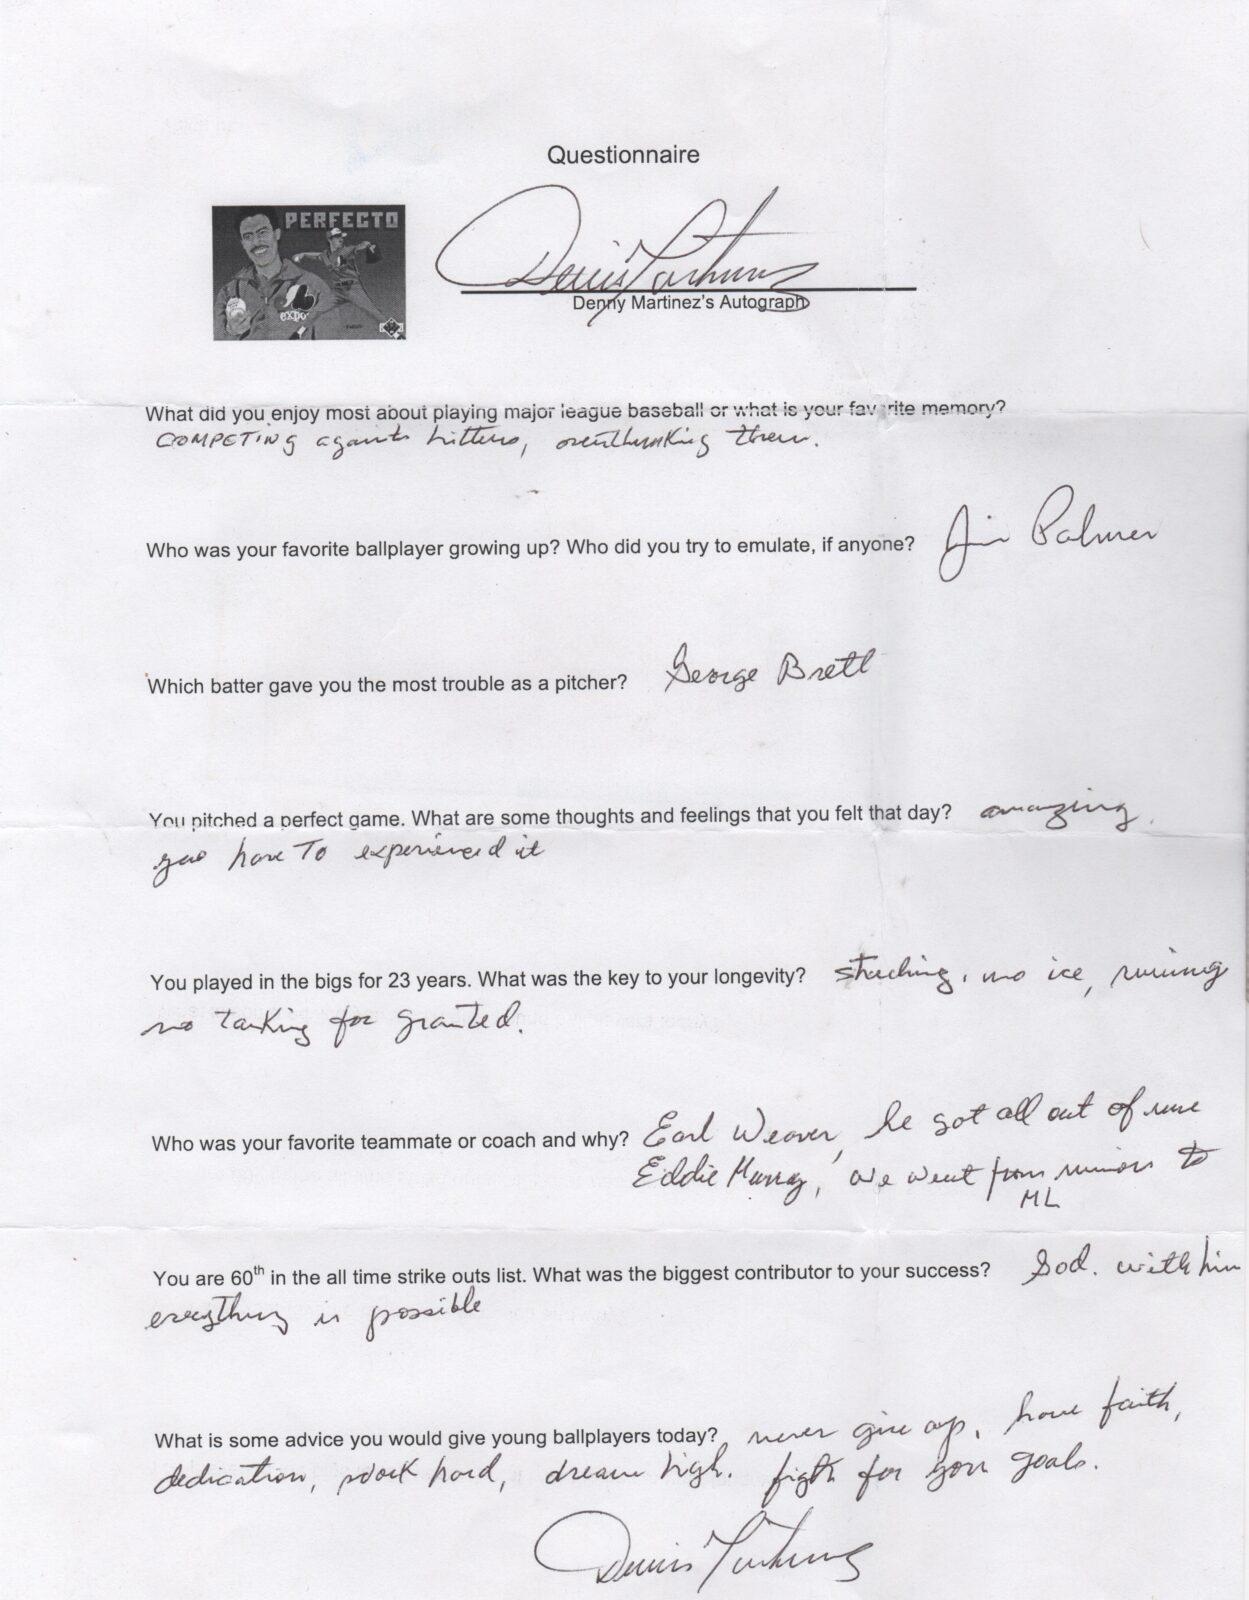 Questionnaire
PERFECTO
expos
Denis Martinez
Denny Martinez's Autograph
What did you enjoy most about playing major league baseball or what is your favorite memory?
COMPETING againts hitters, overthinking them.
Who was your favorite ballplayer growing up? Who did you try to emulate, if anyone? Jim Palmer
Which batter gave you the most trouble as a pitcher? George Brett
You pitched a perfect game. What are some thoughts and feelings that you felt that day? amazing,
you have To experienced it
You played in the bigs for 23 years. What was the key to your longevity? , no ice, running
no tanking for granted.
Who was your favorite teammate or coach and why? Earl Weaver, he got all out of me
Eddie Murray, we went from minors to
ML
You are 60th in the all time strike outs list. What was the biggest contributor to your success? God. with him
everything is possible
What is some advice you would give young ballplayers today? never give up, have faith,
dedication, work hard, dream high. figth for your goals.
Denis Martinez